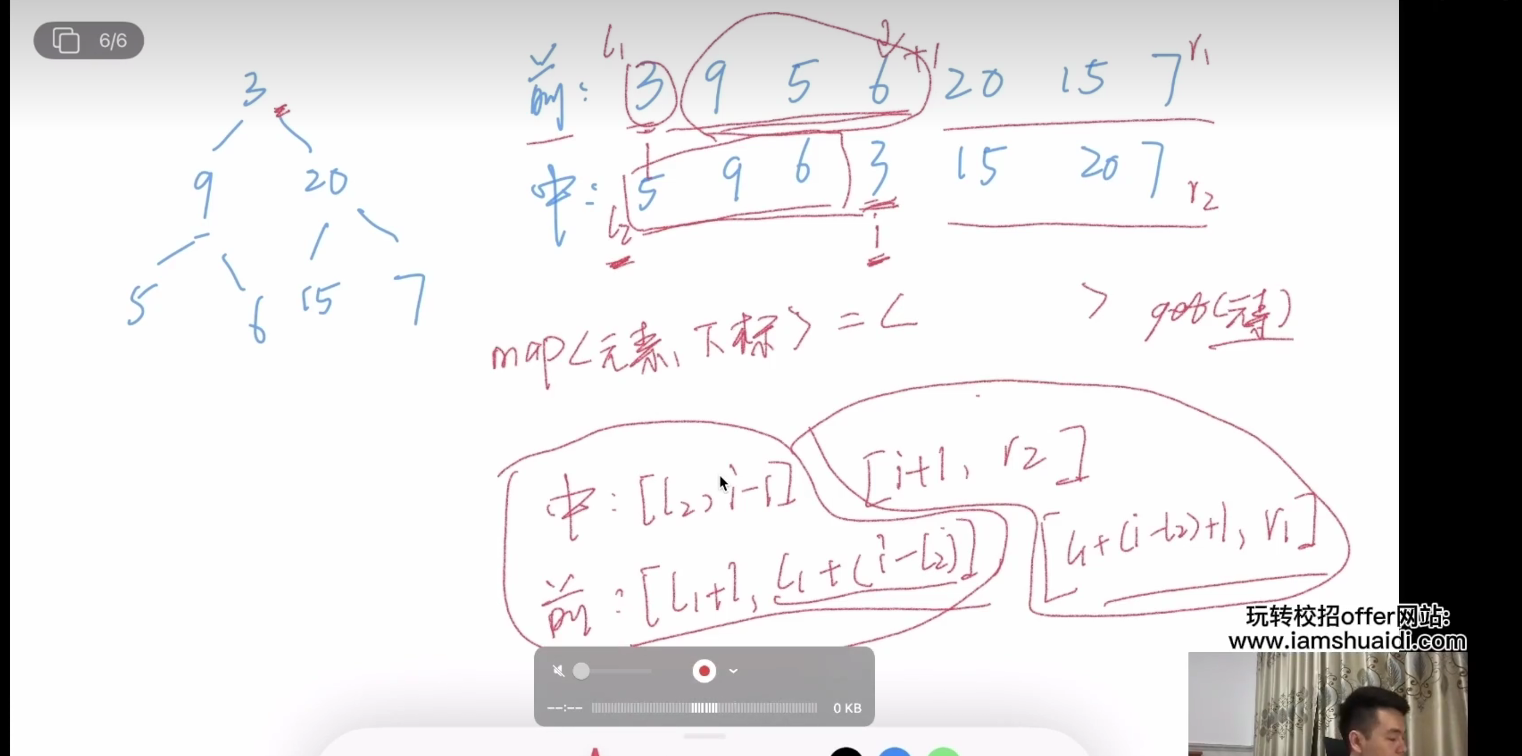 6/6
3
9 20
5 6 15 7
前: 3 9 5 6 20 15 7
L1 +1 r1
中: 5 9 6 3 15 20 7
L2 i r2
map<元素、下标> = < >
中: [L2, i-1] [i+1, r2]
前: [L1+1, L1+(i-L2)] [L1+(i-L2)+1, r1]
玩转校招offer网站:
www.iamshuaidi.com
--:-- 0 KB